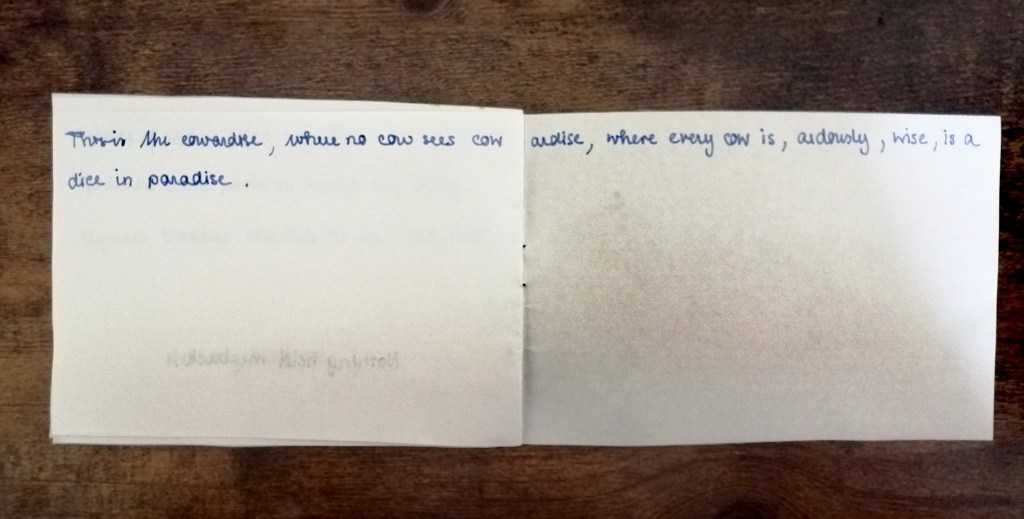 This is the cowardise, where no cow sees cow ardise, where every cow is, ardously, wise, is a
dice in paradise.